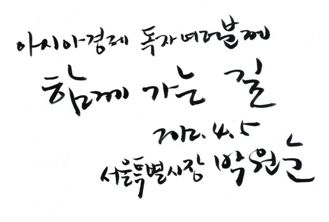 아시아경제 독자여러분께
함께 가는 길
2012. 4. 5
서울특별시장 박원순